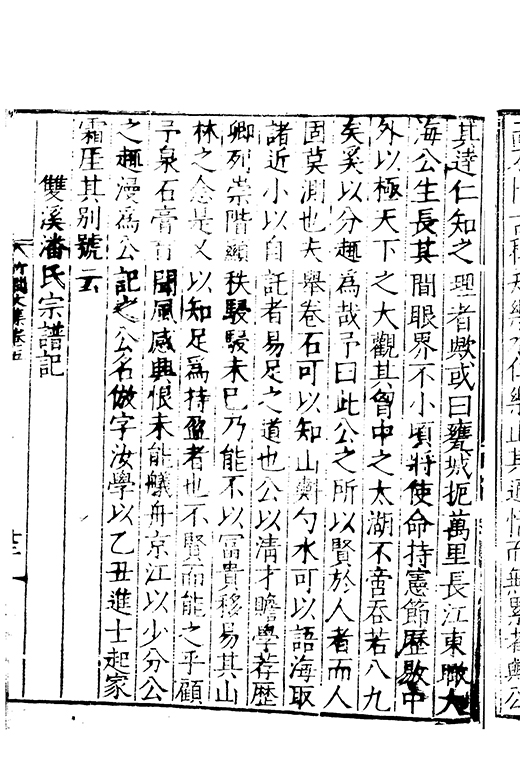 其達仁知之理者歟或曰甕城扼萬里長江東瞰大
海公生長其間眼界不小頃將使命持憲節歷敭中
外以極天下之大觀其胷中之太湖不啻吞若八九
矣奚以分趣為哉予曰此公之所以賢於人者而人
固莫測也夫舉卷石可以知山㪺勺水可以語海取
諸近小以自託者易足之道也公以清才贍學荐歷
卿列崇階顯秩駸駸未已乃能不以富貴移易其山
林之念是又以知足為持盈者也不賢而能之乎顧
予泉石膏肓聞風感興恨未能艤舟京江以少分公
之趣漫為公記之公名倣字汝學以乙丑進士起家
霜厓其別號云
雙溪潘氏宗譜記
竹澗文集卷五